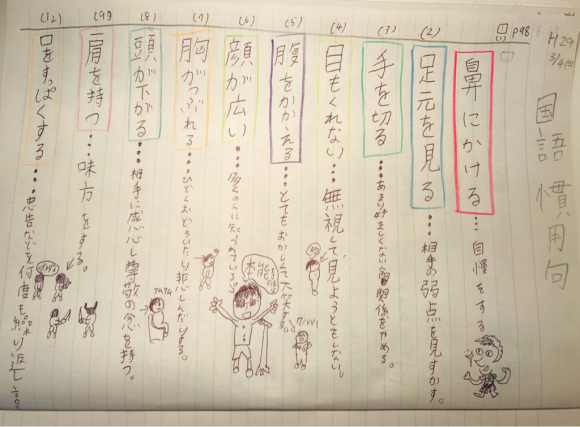 H29
3/4(土)
国語 慣用句
P98
(1) 鼻にかける…自慢をする
(2) 足元を見る…相手の弱点を見すかす。
(3) 手を切る…あまり好ましくない人間関係をやめる。
(4) 目もくれない…無視して見ようともしない。
(5) 腹をかかえる…とてもおかしくて大笑いする。
(6) 顔が広い…多くの人に知られている。
(7) 胸がつぶれる…ひどくおどろいたり悲しんだりする。
(8) 頭が下がる…相手に感心し尊敬の念を持つ。
(9) 肩を持つ…味方をする。
(12) 口をすっぱくする…忠告などを何度も繰り返し言
本能